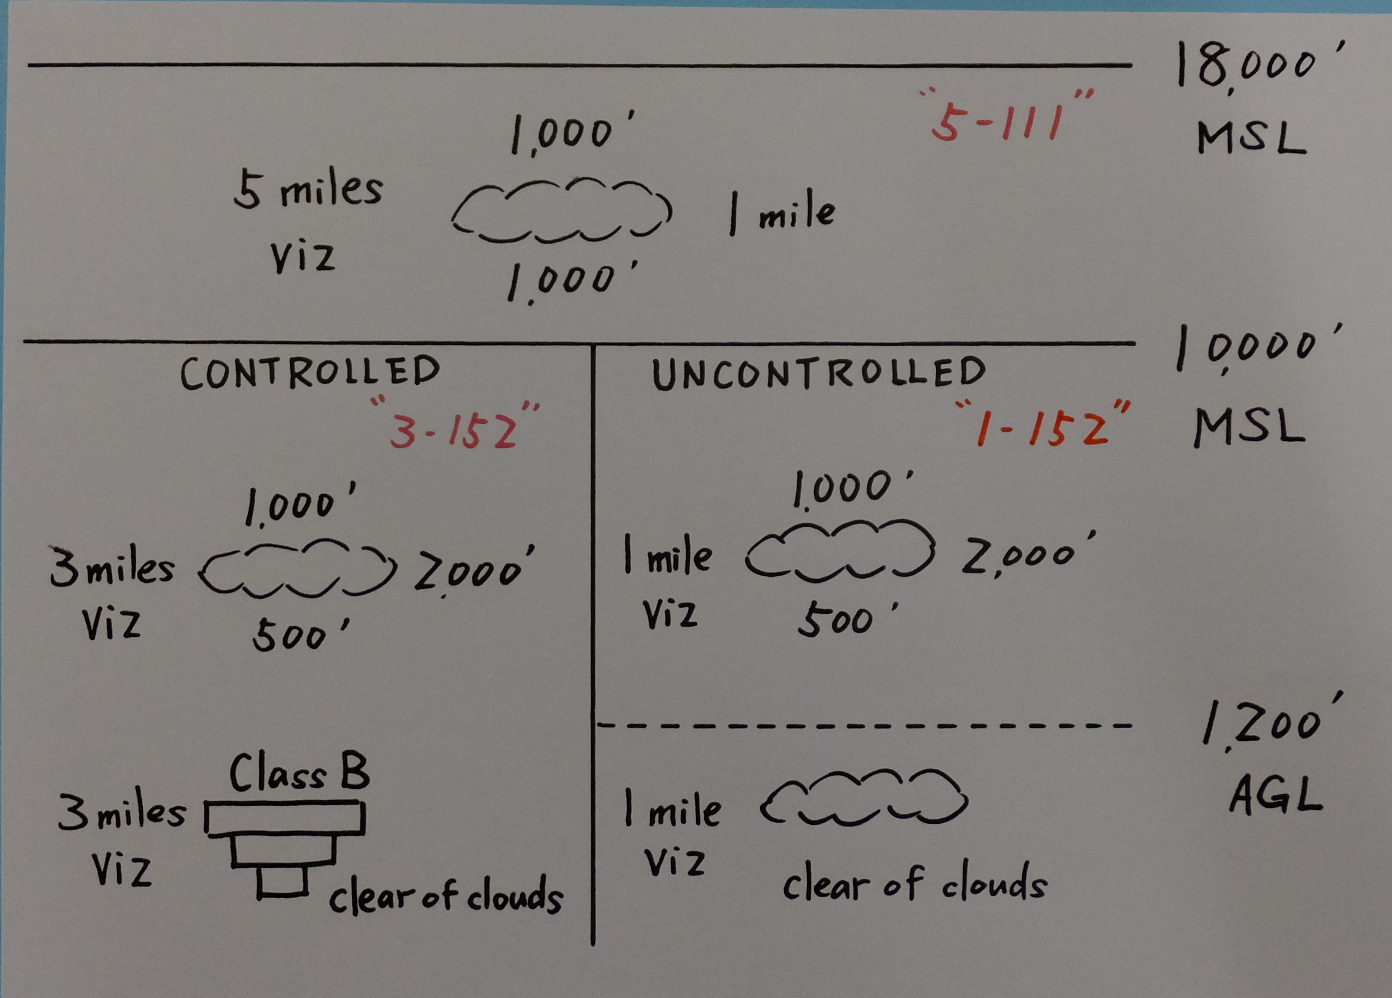 18,000'
MSL
"5-111"
1,000'
5 miles
viz
1 mile
1,000'
10,000'
MSL
CONTROLLED
"3-152"
1,000'
3 miles
viz
2,000'
500'
Class B
3 miles
viz
clear of clouds
UNCONTROLLED
"1-152"
1,000'
1 mile
viz
2,000'
500'
1,200'
AGL
1 mile
viz
clear of clouds